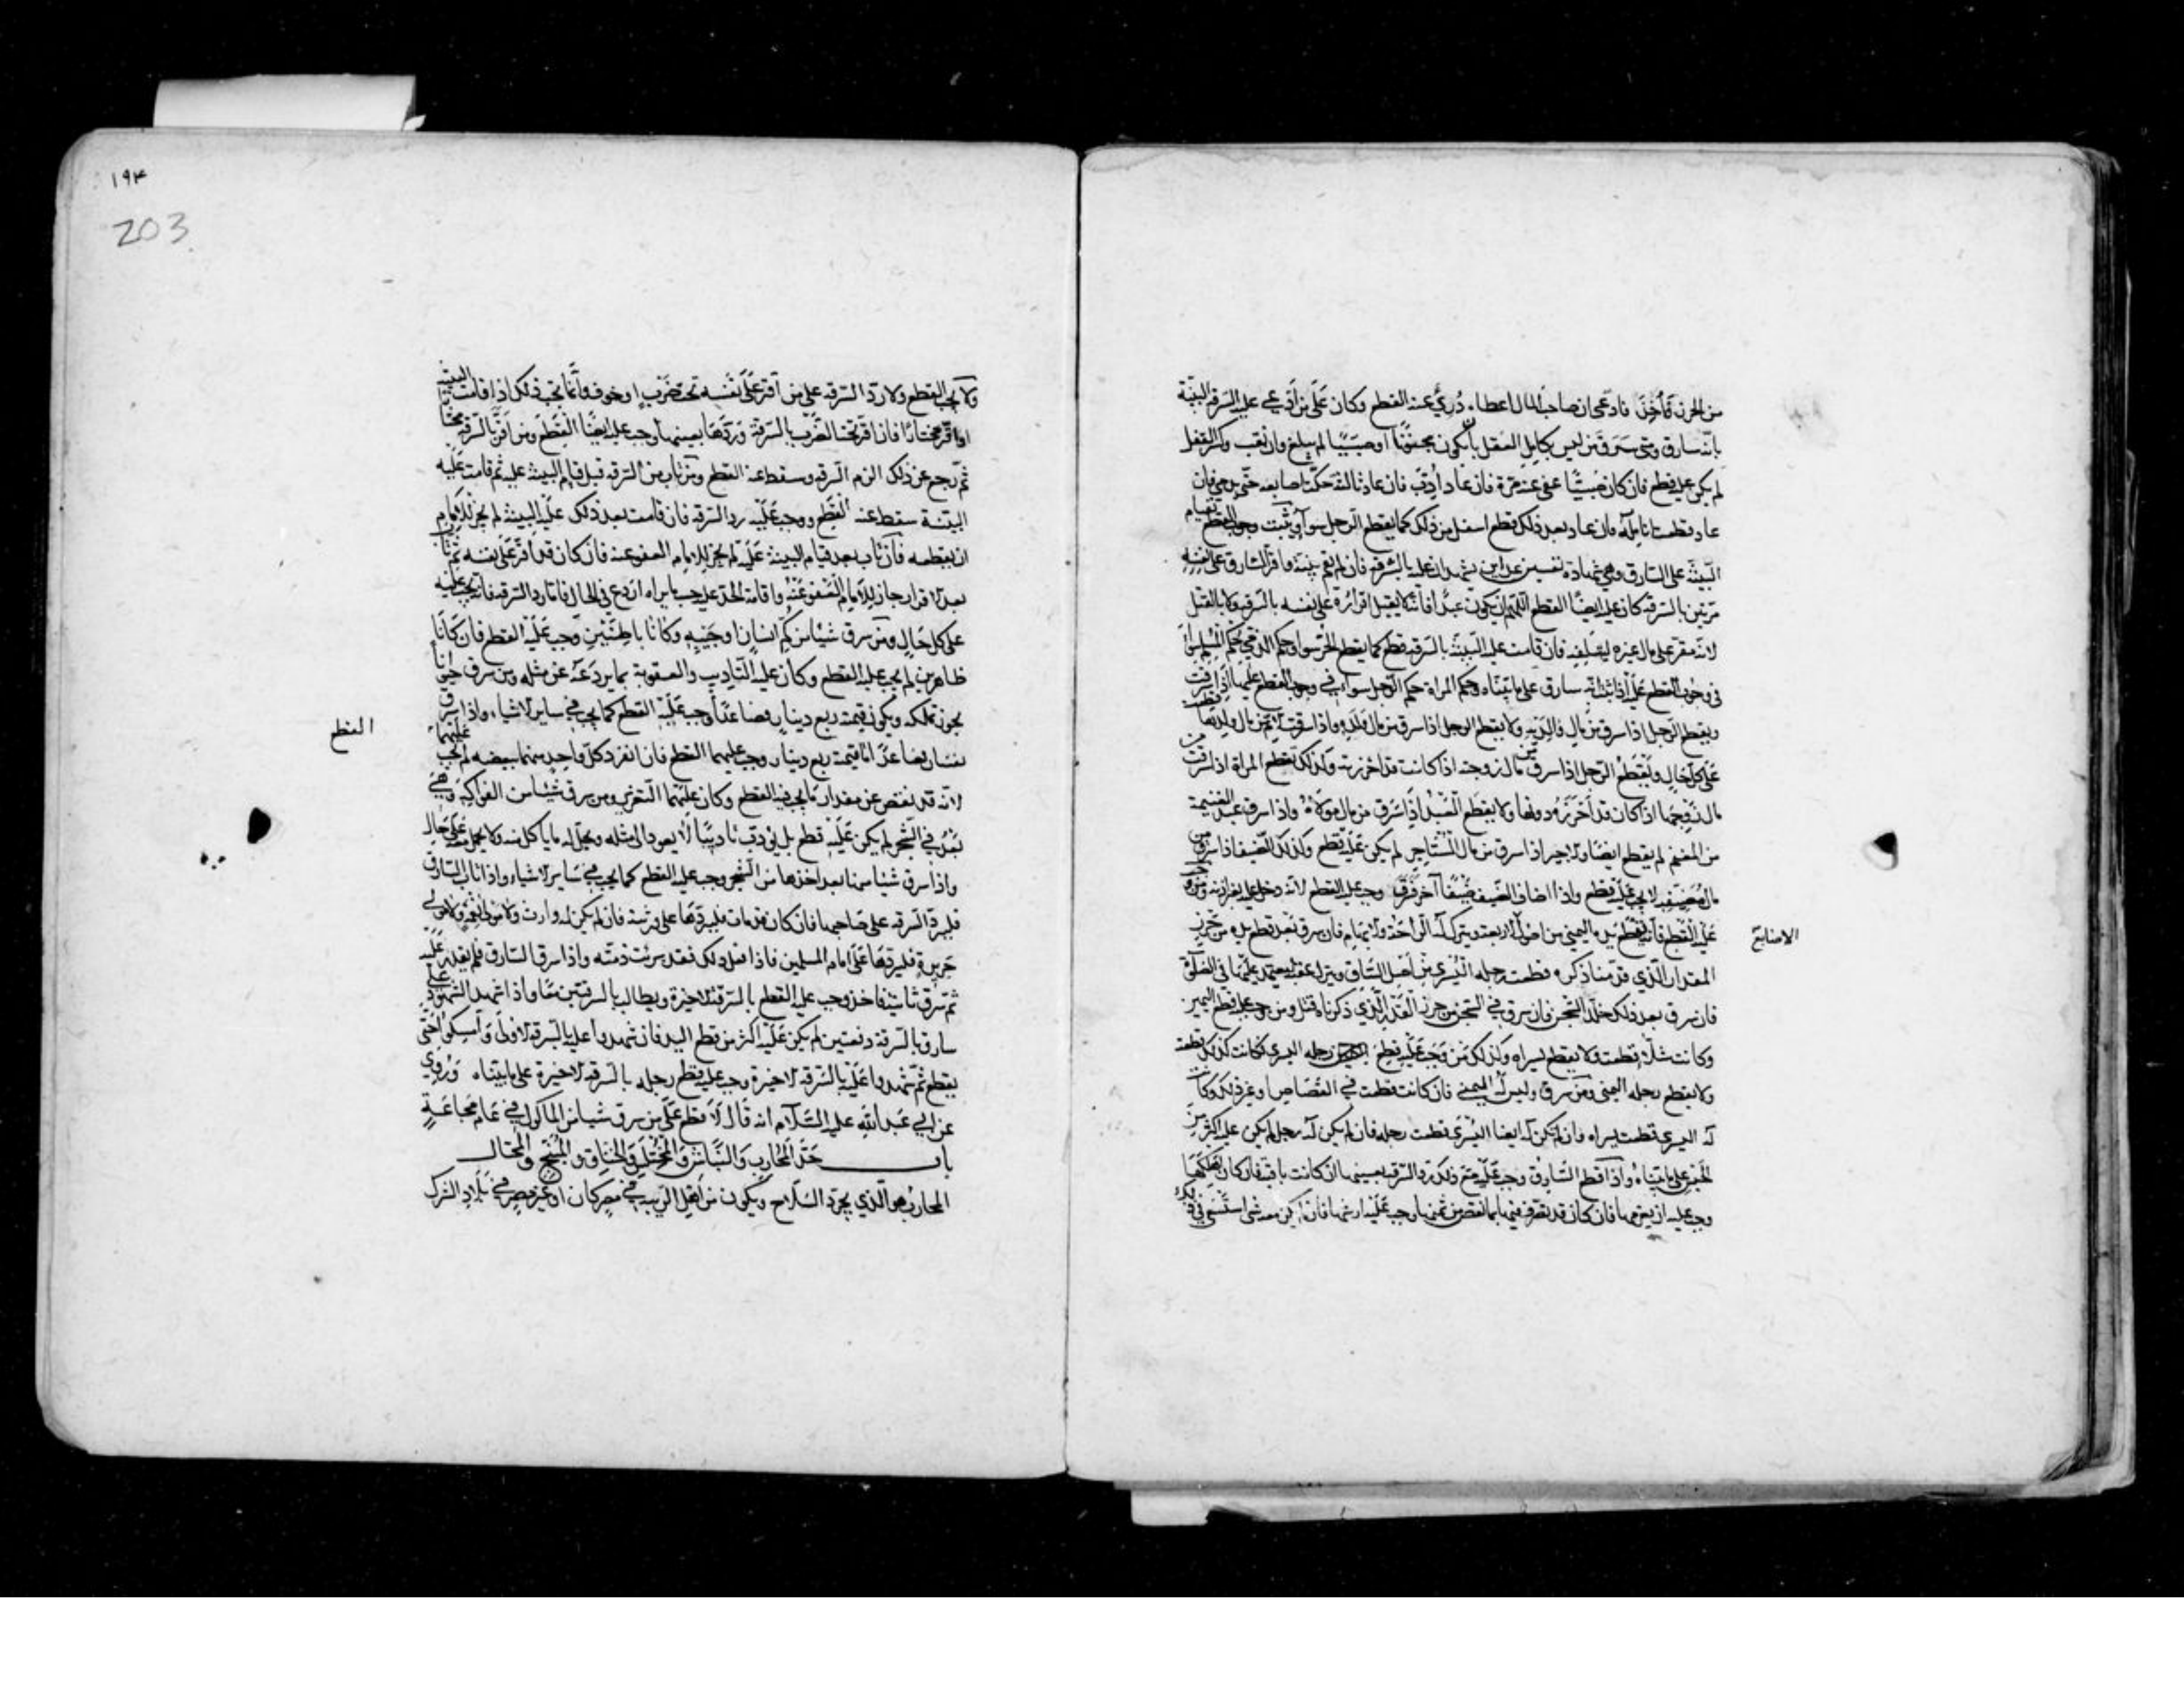 من الحرز فأخذ فادعى ان صاحب المال اعطاه دُرِئ عنه القطع وكان على من ادعى عليه السرقة البينة
بانه سارق ومتى سرق من ليس بكامل العقل بان يكون مجنونا او صبيا لم يبلغ وان نقب وكسر القفل
لم يكن عليه قطع فان كان صبيا عفى عنه مرة فان عاد أُدّب فان عاد ثالثة حكت اصابعه حتى تدمى فان
عاد قطعت انامله فان عاد بعد ذلك قطع اسفل من ذلك كما يقطع الرجل سواء ويثبت وجوب القطع بقيام
البينة على السارق وهي شهادة نفسين عدلين يشهدان عليه بالسرقة فان لم تقم بينة واقر السارق على نفسه
مرتين بالسرقة كان عليه ايضا القطع اللهم ان يكون عبدا فانه لا يقبل اقراره على نفسه بالسرقة ولا بالقتل
لانه مقر على مال غيره ليتلفه فان قامت عليه البينة بالسرقة قطع كما يقطع الحر سواء وحكم الذمي حكم المسلم سواء
في وجوب القطع عليه اذا ثبت انه سارق على ما بيناه وحكم المراة حكم الرجل سواء في وجوب القطع عليها اذا سرقت
ويقطع الرجل اذا سرق من مال والديه ولا يقطع الرجل اذا سرق من مال ولده واذا سرقت الام من مال ولدها قطعت
على كل حال ويقطع الرجل اذا سرق من مال زوجته اذا كانت قد احرزته وكذلك تقطع المراة اذا سرقت من
مال زوجها اذا كان قد احرزه دونها ولا يقطع العبد اذا سرق من مال مولاه واذا سرق عبد الغنيمة
من المغنم لم يقطع ايضا والاجير اذا سرق من مال المستاجر لم يكن عليه قطع وكذلك الضيف اذا سرق من
مال مضيفه لا يجب عليه قطع واذا اضاف الضيف ضيفا آخر فسرق وجب عليه القطع لانه دخل عليه بغير اذنه ومن وجب
عليه القطع فانه تقطع يده اليمنى من اصول الاربعة ويترك له الراحة والابهام فان سرق بعد قطع يده من حرز
الاصابع
المقدار الذي قدمنا ذكره قطعت رجله اليسرى من اصل الساق ويترك عقبه ليعتمد عليها في الصلوة
فان سرق بعد ذلك خلد السجن فان سرق في السجن من حرز القدر الذي ذكرناه قتل ومن وجب عليه قطع اليمين
وكانت شلاء قطعت ولا يقطع يسراه وكذلك من وجب عليه قطع رجله اليسرى فكانت كذلك قطعت
ولا يقطع رجله اليمنى ومن سرق وليس له اليمنى فان كانت قطعت في القصاص او غير ذلك وكانت
له اليسرى قطعت يسراه فان لم تكن له ايضا اليسرى قطعت رجله فان لم يكن له رجل لم يكن عليه اكثر من
الحبس على ما بيناه واذا قطع السارق وجب عليه مع ذلك رد السرقة بعينها ان كانت باقية فان كان اهلكها
وجب عليه ان يغرمها فان كان قد تصرف فيها بما نقص من ثمنها وجب عليه ارشها فان لم يكن معه شئ استسعى في ذلك
١٩٤
203
ولا يجب القطع ولا رد السرقة على من اقر على نفسه تحت ضرب او خوف وانما يجب ذلك اذا قامت البينة
او اقر مختارا فان اقر تحت الضرب بالسرقة وردها بعينها وجب عليه ايضا القطع ومن اقر بالسرقة مختارا
ثم رجع عن ذلك الزم السرقة وسقط عنه القطع ومن تاب من السرقة قبل قيام البينة عليه ثم قامت عليه
البينة سقط عنه القطع ووجب عليه رد السرقة فان قامت بعد ذلك عليه البينة لم يجز للامام
ان يقطعه فان تاب بعد قيام البينة عليه لم يجز للامام العفو عنه فان كان قد اقر على نفسه ثم تاب
بعد الاقرار جاز للامام العفو عنه واقامة الحد عليه حسب ما يراه اردع في الحال فاما رد السرقة فانه يجب عليه
على كل حال ومن سرق شيئا من كم انسان او جيبه وكانا باطنين وجب عليه القطع فان كانا
ظاهرين لم يجب عليه القطع وكان عليه التاديب والعقوبة بما يردعه عن مثله ومن سرق حيوانا
يجوز تملكه ويكون قيمته ربع دينار فصاعدا وجب عليه القطع كما يجب في ساير الاشياء واذا سرق
القطع
نفسان فصاعدا ما قيمته ربع دينار وجب عليهما القطع فان انفرد كل واحد منهما ببعضه لم يجب عليهما
لانه قد نقص عن مقدار ما يجب فيه القطع وكان عليهما التعزير ومن سرق شيئا من الفواكه وهي
بعد في الشجر لم يكن عليه قطع بل يؤدب تاديبا لا يعود الى مثله ويحل له ما ياكل منه ولا يحمل معه على حال
واذا سرق شيئا منها بعد اخذها من الشجر وجب عليه القطع كما يجب في ساير الاشياء واذا تاب السارق
فليرد السرقة على صاحبها فان كان قد مات فليردها على ورثته فان لم يكن له وارث ولا مولى نعمة ولا مولى
جريرة فليردها على امام المسلمين فاذا فعل ذلك فقد برئت ذمته واذا سرق السارق فلم يقدر عليه
ثم سرق ثانية فاخذ وجب عليه القطع بالسرقة الاخيرة ويطالب بالسرقتين معا واذا شهد الشهود على
سارق بالسرقة دفعتين لم يكن عليه اكثر من قطع اليد فان شهدوا عليه بالسرقة الاولى وامسكوا حتى
يقطع ثم شهدوا عليه بالسرقة الاخيرة وجب عليه قطع رجله بالسرقة الاخيرة على ما بيناه وروي
عن ابي عبد الله عليه السلام انه قال لا قطع على من سرق شيئا من الماكول في عام مجاعة
باب حد المحارب والنباش والمختلس والخناق والمبنج والمحتال
المحارب هو الذي يجرد السلاح ويكون من اهل الريبة في مصر كان او غير مصر في بلاد الشرك